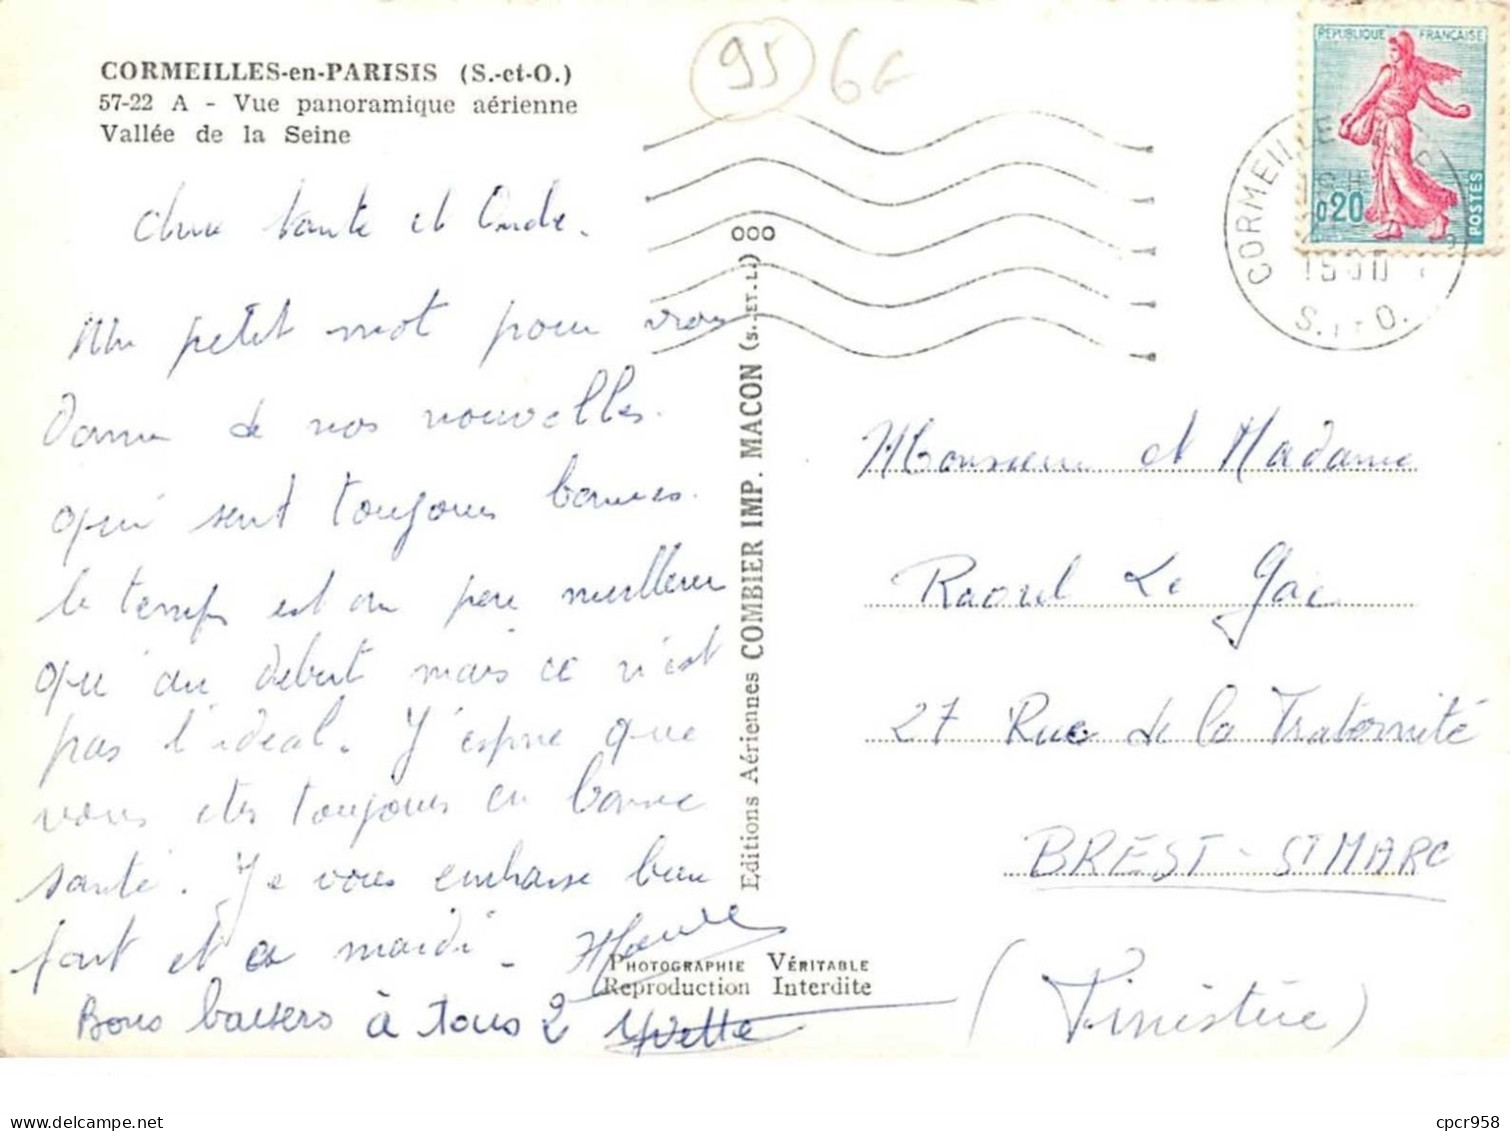 CORMEILLES-en-PARISIS (S.-et-O.)
57-22 A - Vue panoramique aérienne
Vallée de la Seine
95
REPUBLIQUE FRANÇAISE
0,20
POSTES
CORMEILLE
S. ET O.
tante et Oncle.
Un petit mot pour vous
donner de nos nouvelles.
qui sont toujours bonnes.
le temps est un peu meilleur
qu'au debut mais ce n'est
pas l'ideal. J'espere que
vous etes toujours en bonne
santé. Je vous embrasse bien
fort et a mardi.
Bons baisers à tous 2 Yvette
Editions Aériennes COMBIER IMP. MACON (S.-ET-L.) OOO
PHOTOGRAPHIE VÉRITABLE
Reproduction Interdite
Monsieur et Madame
Raoul Le Gac
27 Rue de la Fraternité
BREST - ST MARC
(Finistère)
cpcr958